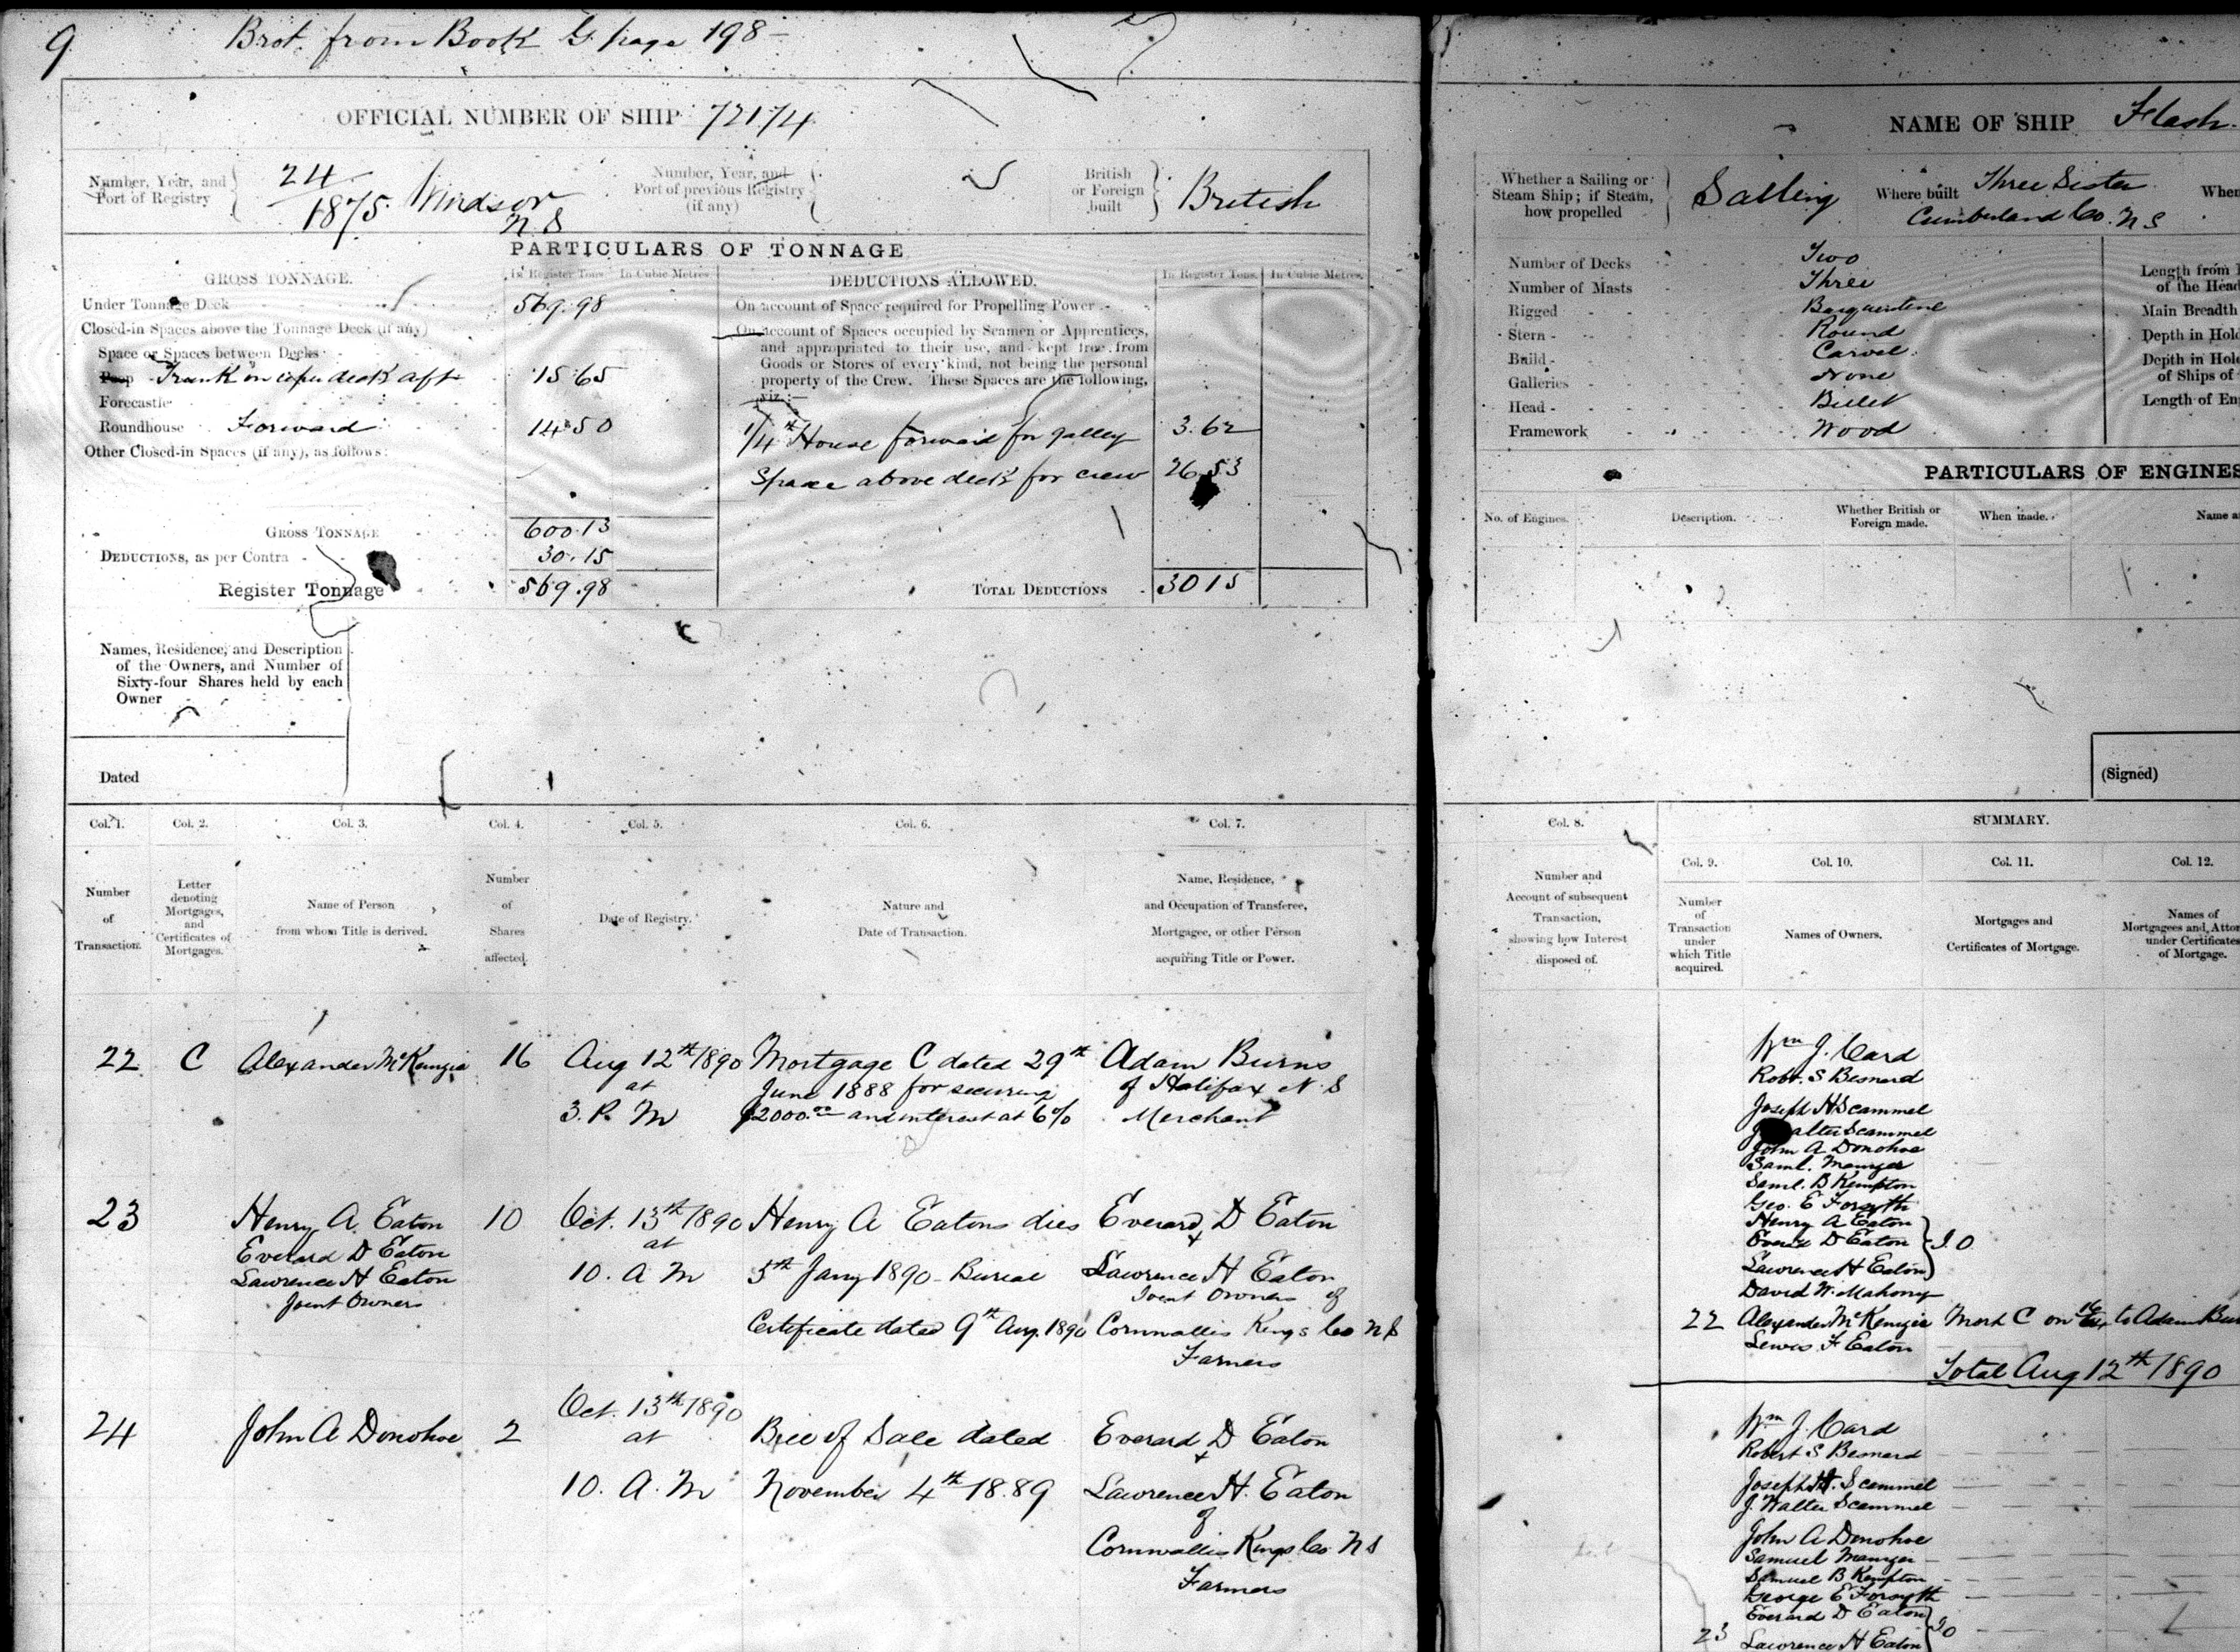 9 Brot. from Book G. page 198 -
OFFICIAL NUMBER OF SHIP 72174
Number, Year, and
Port of Registry
24
1875. Windsor
N. S
Number, Year, and
Port of previous Registry
(if any)
British
or Foreign
built
British
PARTICULARS OF TONNAGE
GROSS TONNAGE.
In Register Tons. In Cubic Metres.
DEDUCTIONS ALLOWED.
In Register Tons. In Cubic Metres.
Under Tonnage Deck 569.98
On account of Space required for Propelling Power
Closed-in Spaces above the Tonnage Deck (if any)
On account of Spaces occupied by Seamen or Apprentices,
and appropriated to their use, and kept free from
Goods or Stores of every kind, not being the personal
property of the Crew. These Spaces are the following,
viz.:—
Space or Spaces between Decks
Poop Trunk on upper deck aft 15.65
Forecastle
Roundhouse Forward 14.50
1/4th House forward for galley 3.62
Other Closed-in Spaces (if any), as follows:
Space above deck for crew 26.53
GROSS TONNAGE 600.13
DEDUCTIONS, as per Contra 30.15
Register Tonnage 569.98
TOTAL DEDUCTIONS 30 15
Names, Residence, and Description
of the Owners, and Number of
Sixty-four Shares held by each
Owner
Dated
Col. 1. Col. 2. Col. 3. Col. 4. Col. 5. Col. 6. Col. 7.
Number
of
Transaction.
Letter
denoting
Mortgages,
and
Certificates of
Mortgages.
Name of Person
from whom Title is derived.
Number
of
Shares
affected.
Date of Registry.
Nature and
Date of Transaction.
Name, Residence,
and Occupation of Transferee,
Mortgagee, or other Person
acquiring Title or Power.
22 C Alexander McKenzie 16 Aug 12th 1890 Mortgage C dated 29th Adam Burns
at June 1888 for securing of Halifax N. S
3. P. M $2000.00 and interest at 6% Merchant
23 Henry A. Eaton 10 Oct. 13th 1890 Henry A Eatons dies Everard D Eaton
Everard D Eaton at &
Lawrence H Eaton 10. A M 5th Jany 1890 - Burial Lawrence H Eaton
Joint Owners Joint Owners of
Certificate dated 9th Aug. 1890 Cornwallis Kings Co N S
Farmers
24 John A Donohoe 2 Oct. 13th 1890 Bill of Sale dated Everard D Eaton
at &
10. A. M November 4th 1889 Lawrence H. Eaton
of
Cornwallis Kings Co N S
Farmers
NAME OF SHIP Flash.
Whether a Sailing or
Steam Ship; if Steam,
how propelled
Sailing
Where built Three Sister
Cumberland Co. N S
When
Number of Decks Two
Number of Masts Three
Rigged Barquentine
Stern Round
Build Carvel
Galleries None
Head Billet
Framework Wood
Length from
of the Head
Main Breadth
Depth in Hold
Depth in Hold
of Ships of
Length of En
PARTICULARS OF ENGINES
No. of Engines. Description.
Whether British or
Foreign made.
When made. Name a
(Signed)
Col. 8. SUMMARY.
Col. 9. Col. 10. Col. 11. Col. 12.
Number and
Account of subsequent
Transaction,
showing how Interest
disposed of.
Number
of
Transaction
under
which Title
acquired.
Names of Owners.
Mortgages and
Certificates of Mortgage.
Names of
Mortgagees and Attor
under Certificates
of Mortgage.
Wm J. Card
Robt. S Besnard
Joseph H Scammel
J Walter Scammel
John A Donohoe
Saml. Manger
Saml. B Kempton
Geo. E Forsyth
Henry A Eaton
Everd D Eaton J. O
Lawrence H Eaton
David W. Mahony
22 Alexander McKenzie Mort C on 16/64 to Adam Bur
Lewis F Eaton
Total Aug 12th 1890
Wm J. Card
Robert S Besnard
Joseph H. Scammel
J. Walter Scammel
John A Donohoe
Samuel Manger
Samuel B Kempton
George E Forsyth
Everard D Eaton
23 Lawrence H Eaton J O